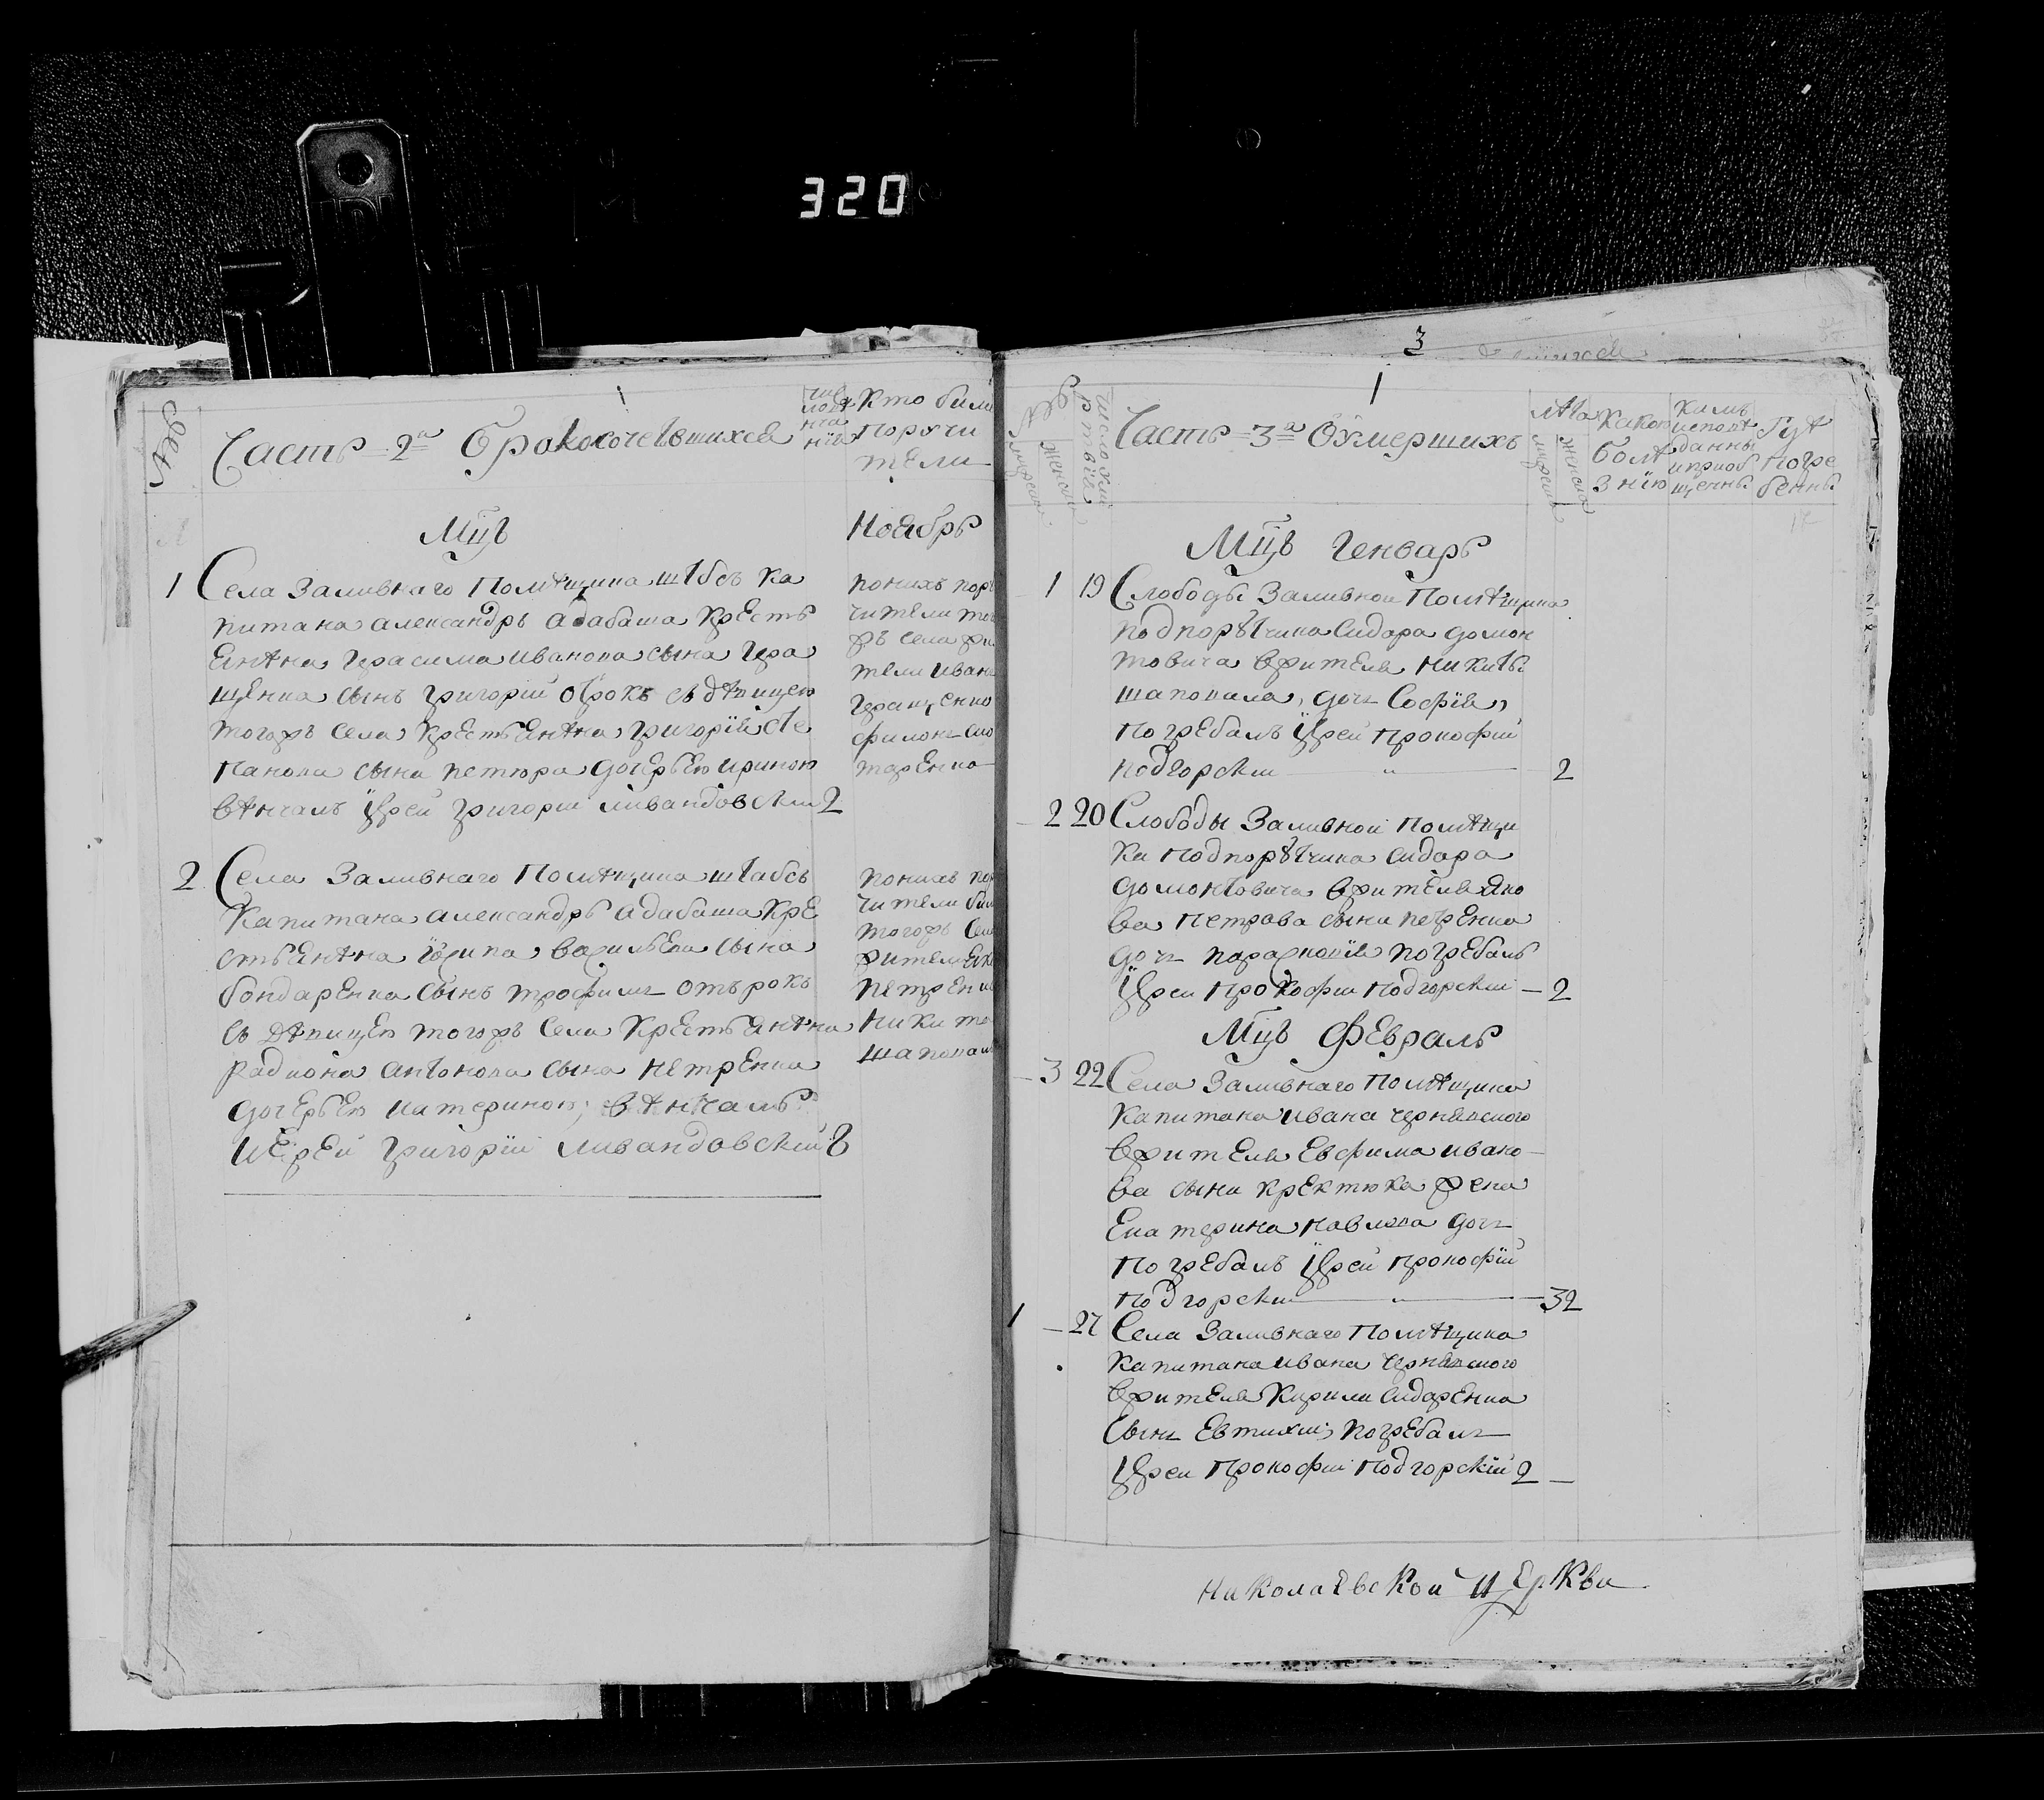 320
1
Часть 2я Бракосочетавшихся
Кто были
поручи
тели
Мцъ
Ноябрь
1 Села Заливнаго Помѣщика штабсъ ка
питана александръ адабаша крестья
янѣна Герасима иванова сына Гера
щенка сынъ григорій отрокъ съ дѣвицею
тогожъ села крестьянѣна григорія сте
панова сына петюра дочерью ириною
вѣнчалъ іерей григорій ливандовскій 2
понихъ пору
чители того
жъ села жи
тели ивана
Геращенко
филонъ
таренко
2 Села Заливнаго Помѣщика штабсъ
капитана александръ адабаша кре
стьянѣна іосипа васильева сына
бондаренка сынъ трофимъ отърокъ
съ дѣвицею тогожъ села крестьянѣна
радиона антонова сына петренка
дочерью катериною; вѣнчалъ
иерей григорій ливандовскій 8
понихъ пор
чители были
тогожъ села
жители
петренко
никита
шаповал
3
1
число
Часть 3я Оумершихъ
лѣта
какою
болѣ
знію
кимъ
исповѣ
данны
и приоб
щенны
Гдѣ
погре
бенны
мужеска
женска
Мцъ Генварь
1 19 Слободы Заливной Помѣщика
подпорутчика Сидора домон
товича жителя никиты
шаповала, дочь Софія,
погребалъ іерей прокофій
подгорскій — " — 2
2 20 Слободы Заливной помѣщи
ка подпорутчика сидора
домонтовича жителя яко
ва петрова сына петренка
дочь парасковія погребалъ
іерей прокофій подгорскій — 2
Мцъ Февраль
3 22 Села Заливнаго помѣщика
капитана ивана чернявского
жителя Евфима ивано-
ва сына кректюка жена
Екатерина павлова дочь
погребалъ іерей прокофій
подгорскій — " — 32
1 — 27 Села Заливнаго Помѣщика
капитана ивана чернявского
жителя Кирила сидоренка
сынъ Евтихій; погребалъ
іерей прокофій подгорскій 2 —
Николаевской церкви